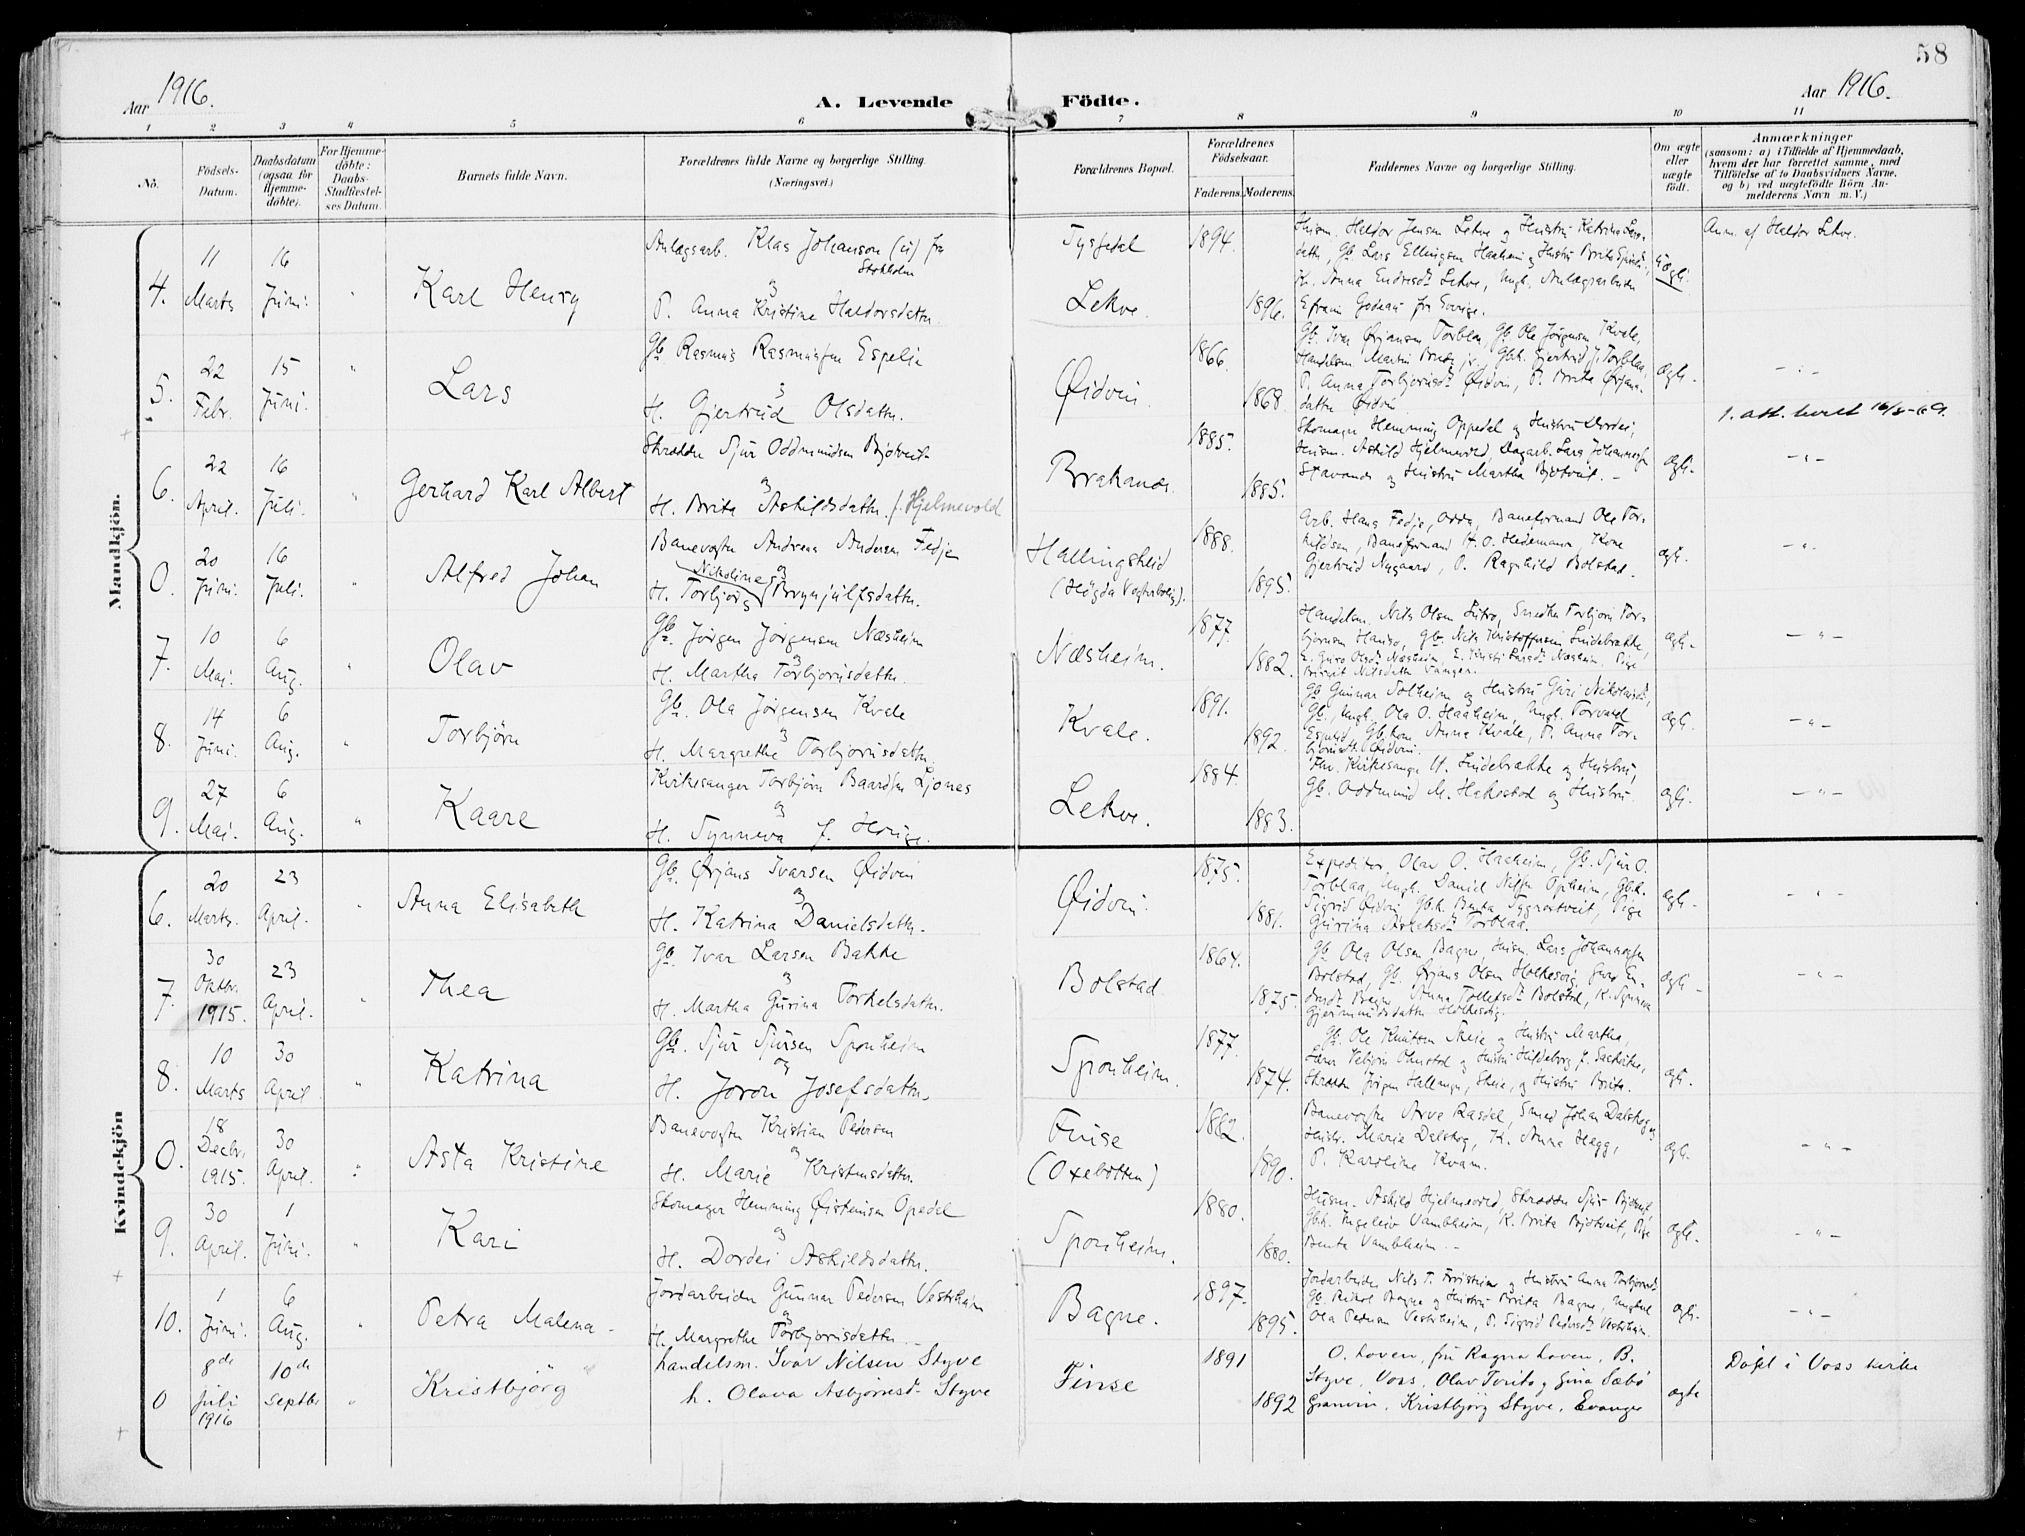 58
Aar 1916.
A. Levende Födte.
Aar 1916.
1 2 3 4 5 6 7 8 9 10 11
No.
Födsels-Datum.
Daabsdatum (ogsaa for Hjemme-döbte).
For Hjemme-döbte: Daabs-Stadfæstel-ses Datum.
Barnets fulde Navn.
Forældrenes fulde Navne og borgerlige Stilling.
(Næringsvei.)
Forældrenes Bopæl.
Forældrenes Födselsaar.
Faderens. Moderens.
Faddernes Navne og borgerlige Stilling.
Om ægte eller uægte födt.
Anmærkninger
(saasom: a) i Tilfælde af Hjemmedaab, hvem der har forrettet samme, med Tilföielse af to Daabsvidners Navne. og b) ved uægtefödte Börn Anmelderens Navn m. V.)
Mandkjön.
4. 11 Marts 16 Juni. " Karl Henry
Anlægsarb. Klas Johanson (u) fra Stokholm
og
P. Anna Kristine Haldorsdattr.
Tysfedal
Lekve.
1894. 1896.
Husm. Haldor Jensen Lekve og Hustru Katrina Lars-
dattr, Gb. Lars Ellingsen Haaheim og Hustru Brita
K. Anna Endresdtr Lekve, Ungk. Anlægsarbeider
Efraim fra Sverige.
uægt.
Anm. af Haldor Lekve.
5. 22 Febr. 15 Juni. " Lars
Gb. Rasmus Rasmussen Espelie
og
H. Gjertrud Olsdattr.
Øidvin.
1866. 1868
Gb. Ivar Ørjansen Torblaa, Gb. Ole Jørgensen Kvale,
Handelsm. Martin jr., Gbk. Gjertrud J. Torblaa,
P. Anna Torbjørnsdtr Øidvin, P. Brita Ørjans-
dattr Øidvin
ægt.
- " -
1. att.
6. 22 April. 16 Juli. " Gerhard Karl Albert
Skrædder Sjur Oddmundsen Bjotveit
og
H. Brita Askildsdattr. f. Hjelmevold
Brakanes.
1885. 1885.
Skomager Hemming Oppedal og Hustru Dordei,
Husm. Askild Hjelmevold, Dagarb. Lars Johannessen
Stavanes og Hustru Martha Bjotveit. -
ægt.
- " -
0. 20 Juni. 16 Juli. " Alfred Johan
Banevogter Andreas Andersen Fedje
Nikoline og
H. Torbjørg Brynjulfsdattr.
Hallingskeid
(Høgda Vogterbolig).
1888. 1895.
Arb. Hans Fedje, Odda, Baneformand Ole Tor-
kildsen, Baneformand H. O. Hedemann Kone
Gjertrud Nygaard, P. Ragnhild Bolstad.
ægt.
- " -
7. 10 Mai. 6 Aug. " Olav
Gb. Jørgen Jørgensen Næsheim
og
H. Martha Torbjørnsdattr.
Næsheim.
1877. 1882.
Handelsm. Nils Olsen Seitro, Smeden Torbjørn Tor-
bjørnsen Hanso, Gb. Nils Kristoffersen Lindebrække,
E. Guro Olsdtr Næsheim, E. Kristi Larsdtr Næsheim, Pige
Nilsdattr Vangen.
ægt.
- " -
8. 14 Juni. 6 Aug. " Torbjörn
Gb. Ola Jørgensen Kvale
og
H. Margrethe Torbjørnsdattr.
Kvale.
1891. 1892.
Gb. Gunnar Solheim og Hustru Guri Nikolaisdtr,
Gb., Ungk. Ola O. Haaheim, Ungk. Torvald
Espelid, Gb. kone Anna Kvale, P. Anna Tor-
bjørnsdtr. Øidvin.
ægt.
- " -
9. 27 Mai. 6 Aug. " Kaare
Kirkesanger Torbjørn Baardsen Ljones
og
H. Synneva f. Horige.
Lekve.
1884. 1883.
Fhv. Kirkesanger H. Lindebrække og Hustru,
Gb. Oddmund M. Hakestad og Hustru.
ægt.
- " -
Kvindekjön
6. 20 Marts. 23 April. " Anna Elisabeth
Gb. Ørjans Ivarsen Øidven
og
H. Katrina Danielsdattr.
Øidvin.
1875. 1881.
Expeditør Olav O. Haaheim, Gb. Sjur O.
Torblaa, Ungk. Daniel Nilsen Opheim, Gbk.
Sigrid Øidvin, Gbk. Benta Tygnestveit, Pige
Gurina Aslaksdtr Torblaa.
ægt.
- " -
7. 30 Oktbr. 1915. 23 April. " Thea
Gb. Ivar Larsen Bakke
og
H. Martha Gurina Torkelsdattr.
Bolstad
1864. 1875.
Gb. Ola Olsen Bagne, Husm. Lars Johannessen
Bolstad, Gb. Ørjans Olsen Holkesvig, Guro En-
dresdtr Bagne, Anna Tollefsdtr Bolstad, K. Synneva
Gjermundsdattr Holkesvig.
ægt.
- " -
8. 10 Marts 30 April. " Katrina
Gb. Sjur Sjursen Sponheim
og
H. Joron Josefsdattr.
Sponheim.
1877. 1874.
Gb. Ole Knutsen Skeie og Hustru Martha,
Lærer Vebjørn Olmstad og Hustru Hildeborg f. Saakvitne,
Skrædder Jørgen Hallanger, Skeie, og Hustru Brita.
ægt.
0. 18 Decbr. 1915. 30 April. " Asta Kristine
Banevogter Kristian Pedersen
og
H. Marie Kristensdattr.
Finse
(Oxebotten)
1882. 1890.
Banevogter Arve Rasdal, Smed Johan Dalskog og
Hustr. Marie Dalskog, K. Anna Hegg,
P. Karoline Kvam.
ægt.
- " -
9. 30 April. 1 Juni. " Kari
Skomager Hemming Øisteinsen Opedal
og
H. Dordei Askildsdattr.
Sponheim.
1880. 1880.
Husm. Askild Hjelmevold, Skrædder Sjur Bjotveit,
Gbk. Ingeleiv Vambheim, K. Brita Bjotveit, Pige
Benta Vambheim. -
ægt.
- " -
10. 1 Juni. 6 Aug. " Petra Malena
Jordarbeider Gunnar Pedersen Vestrheim
og
H. Margrethe Torbjørnsdattr.
Bagne.
1897. 1895.
Jordarbeider Nils T. Frøistein og Hustru Anna Torbjørnsdtr
Gb. Bagne og Hustru Brita Bagne, Ungkarl
Ola Pedersen Vestrheim, P. Sigrid Pedersdtr Vestrheim.
ægt.
- " -
0 8de Juli 1916 10de Septbr " Kristbjörg
Handelsm. Ivar Nilsen Styve
h. Olava Asbjørnsdtr Styve
Finse
1891 1892
O. Loven, fru Ragna Loven, B.
Styve, Voss, Olav Tveito og Gina Sæbö
Granvin. Kristbjörg Styve, Evanger
ægte
Døpt i Voss kirke